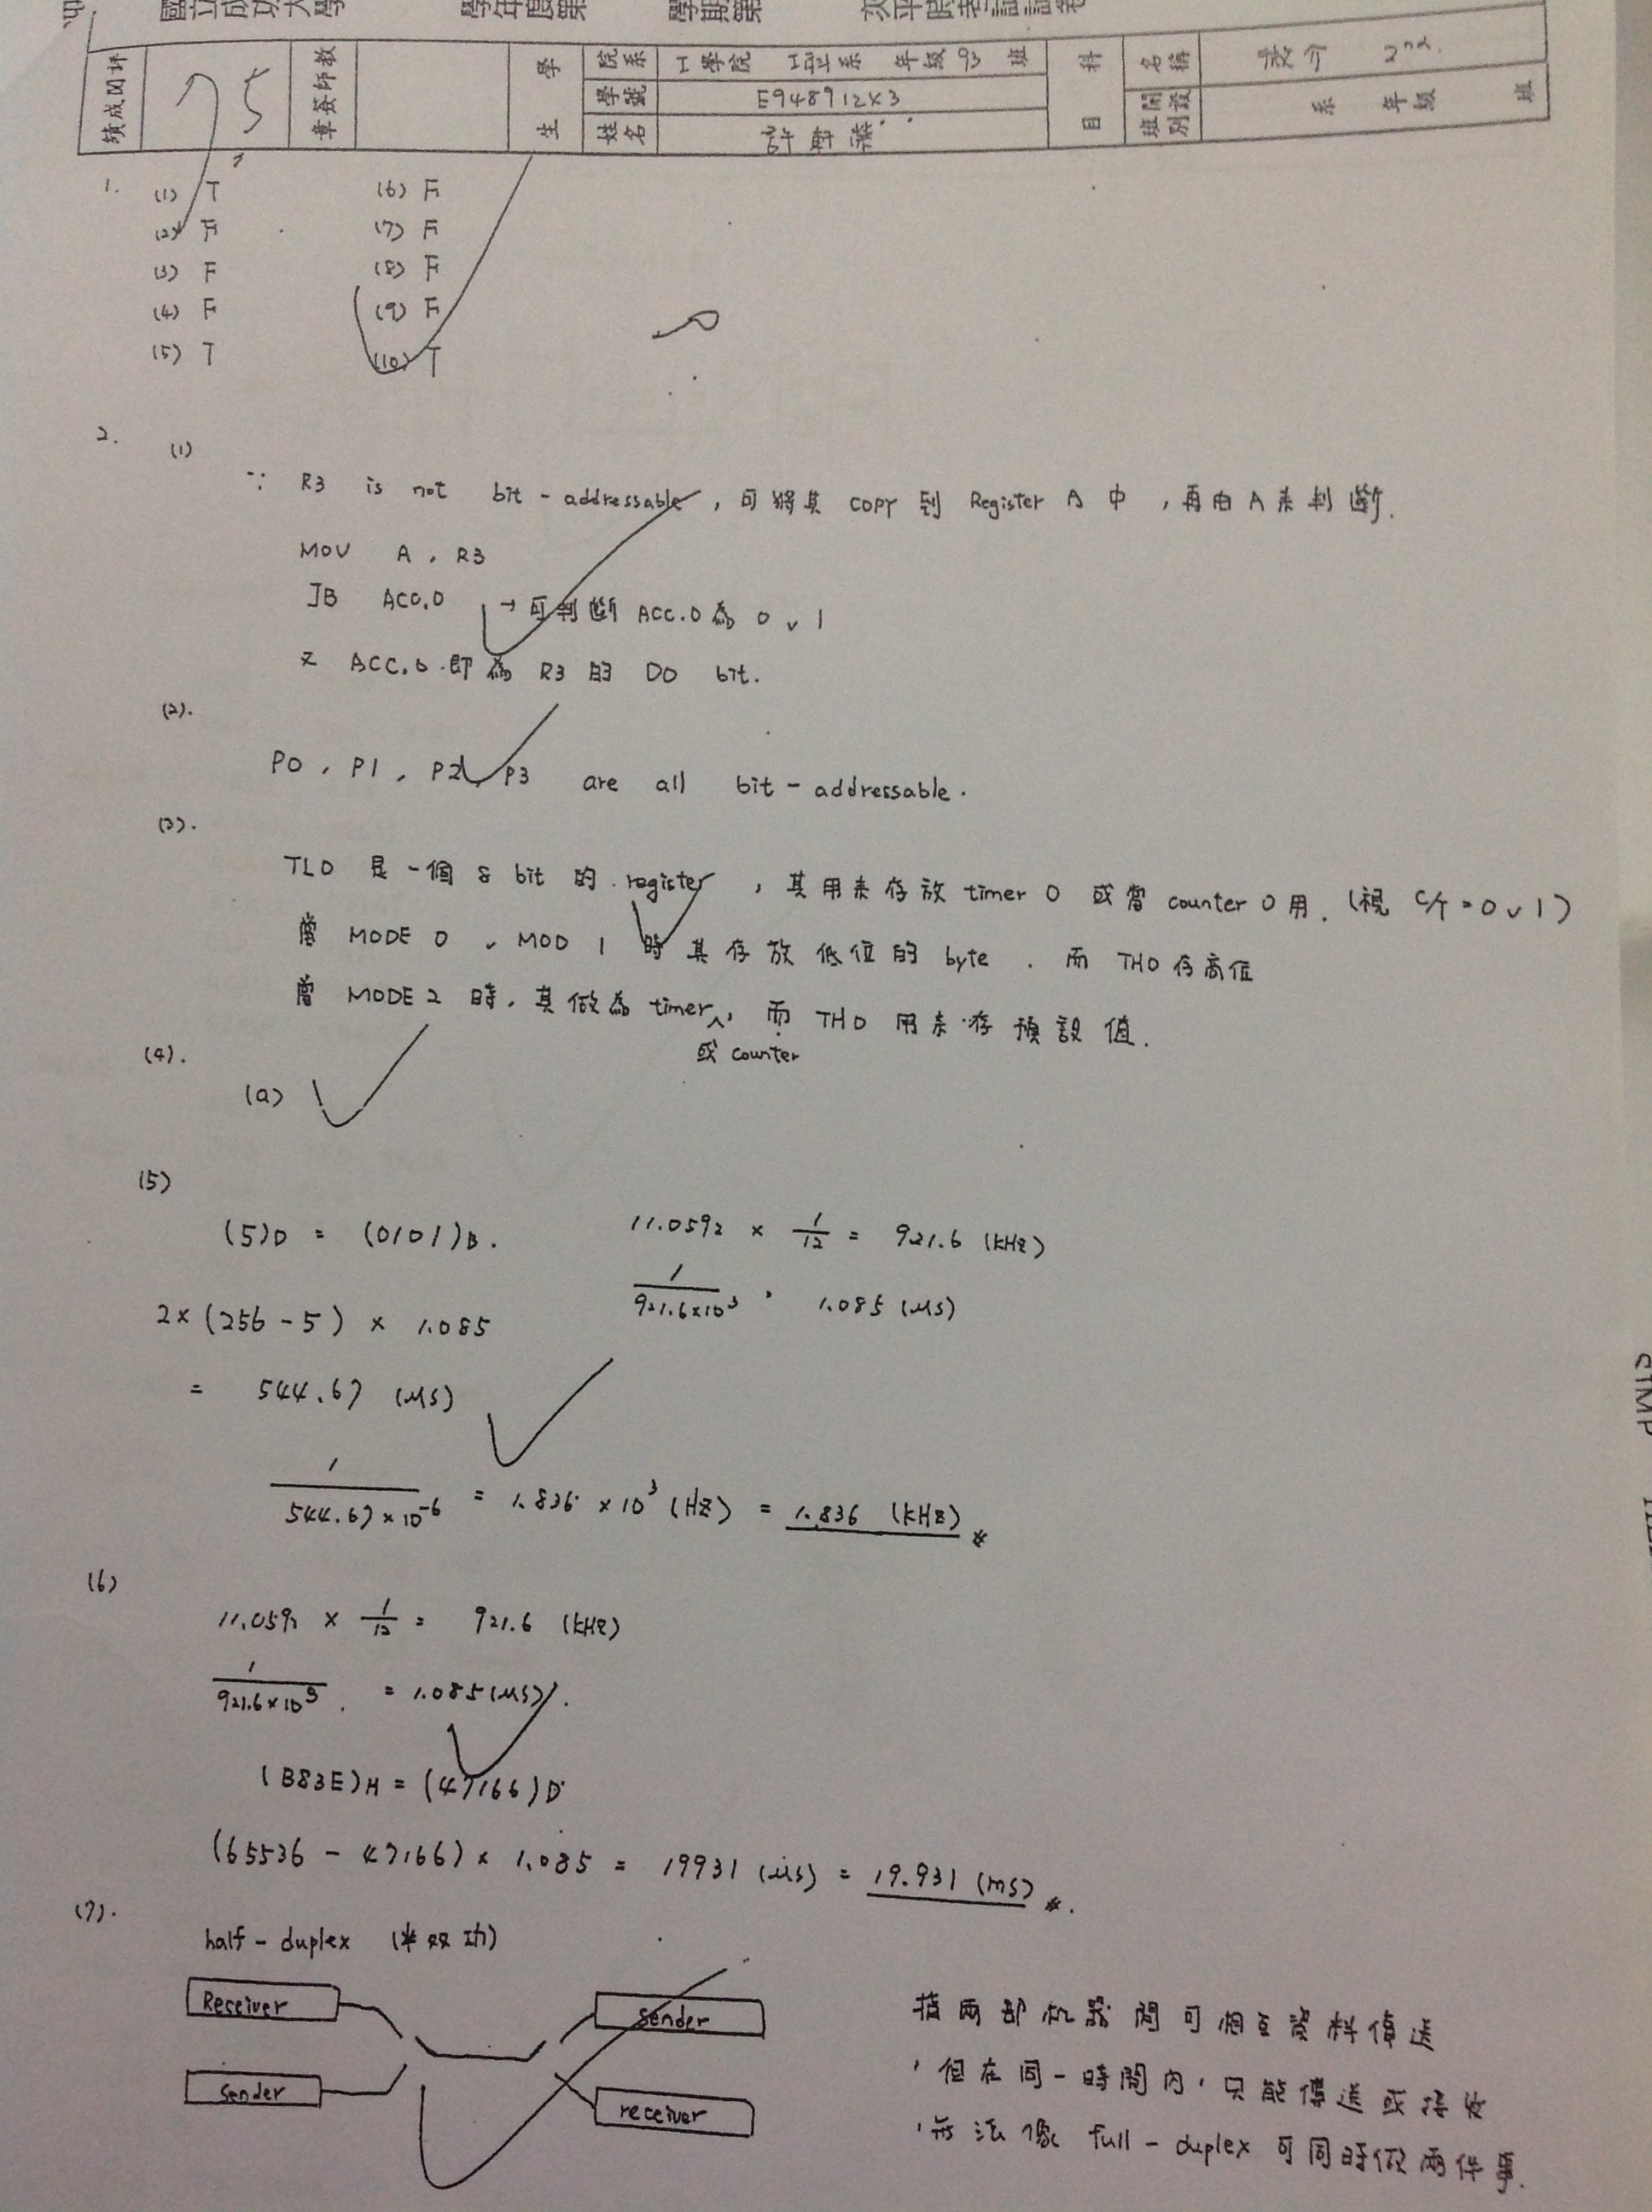 國立成功大學 學年度第 學期第 次平時考試試卷
績成閱評 75 章蓋師教 學生 院系 工學院 工科系 年級 93 班 科目 名稱 微介 2nd.
學號 E948912X3 開設班別 系 年級 班
姓名 許軒榮
1. (1) T (6) F
(2) F (7) F
(3) F (8) F
(4) F (9) F
(5) T (10) T
2. (1)
∵ R3 is not bit-addressable, 可將其 copy 到 Register A 中, 再由 A 來判斷.
MOV A, R3
JB ACC.0 → 可判斷 ACC.0 為 0 v 1
又 ACC.0 即為 R3 的 D0 bit.
(2).
P0, P1, P2, P3 are all bit-addressable.
(3).
TL0 是一個 8 bit 的 register, 其用來存放 timer 0 或當 counter 0 用. (視 C/T = 0 v 1)
當 MODE 0 v MOD 1 時其存放低位的 byte. 而 TH0 存高位
當 MODE 2 時, 其做為 timer 或 counter, 而 TH0 用來存預設值.
(4).
(a)
(5)
(5)D = (0101)B. 11.0592 × 1/12 = 921.6 (kHz)
1/921.6×10³ , 1.085 (μs)
2×(256-5) × 1.085
= 544.67 (μs)
1/544.67×10⁻⁶ = 1.836 ×10³ (Hz) = 1.836 (kHz) *
(6)
11.0592 × 1/12 = 921.6 (kHz)
1/921.6×10³ = 1.085(μs).
(B83E)H = (47166)D
(65536 - 47166) × 1.085 = 19931 (μs) = 19.931 (ms) *.
(7).
half-duplex (半双功)
Receiver Sender
Sender receiver
指兩部机器間可相互資料傳送
, 但在同一時間內, 只能傳送或接收
, 無法像 full-duplex 可同時做兩件事.
STMP